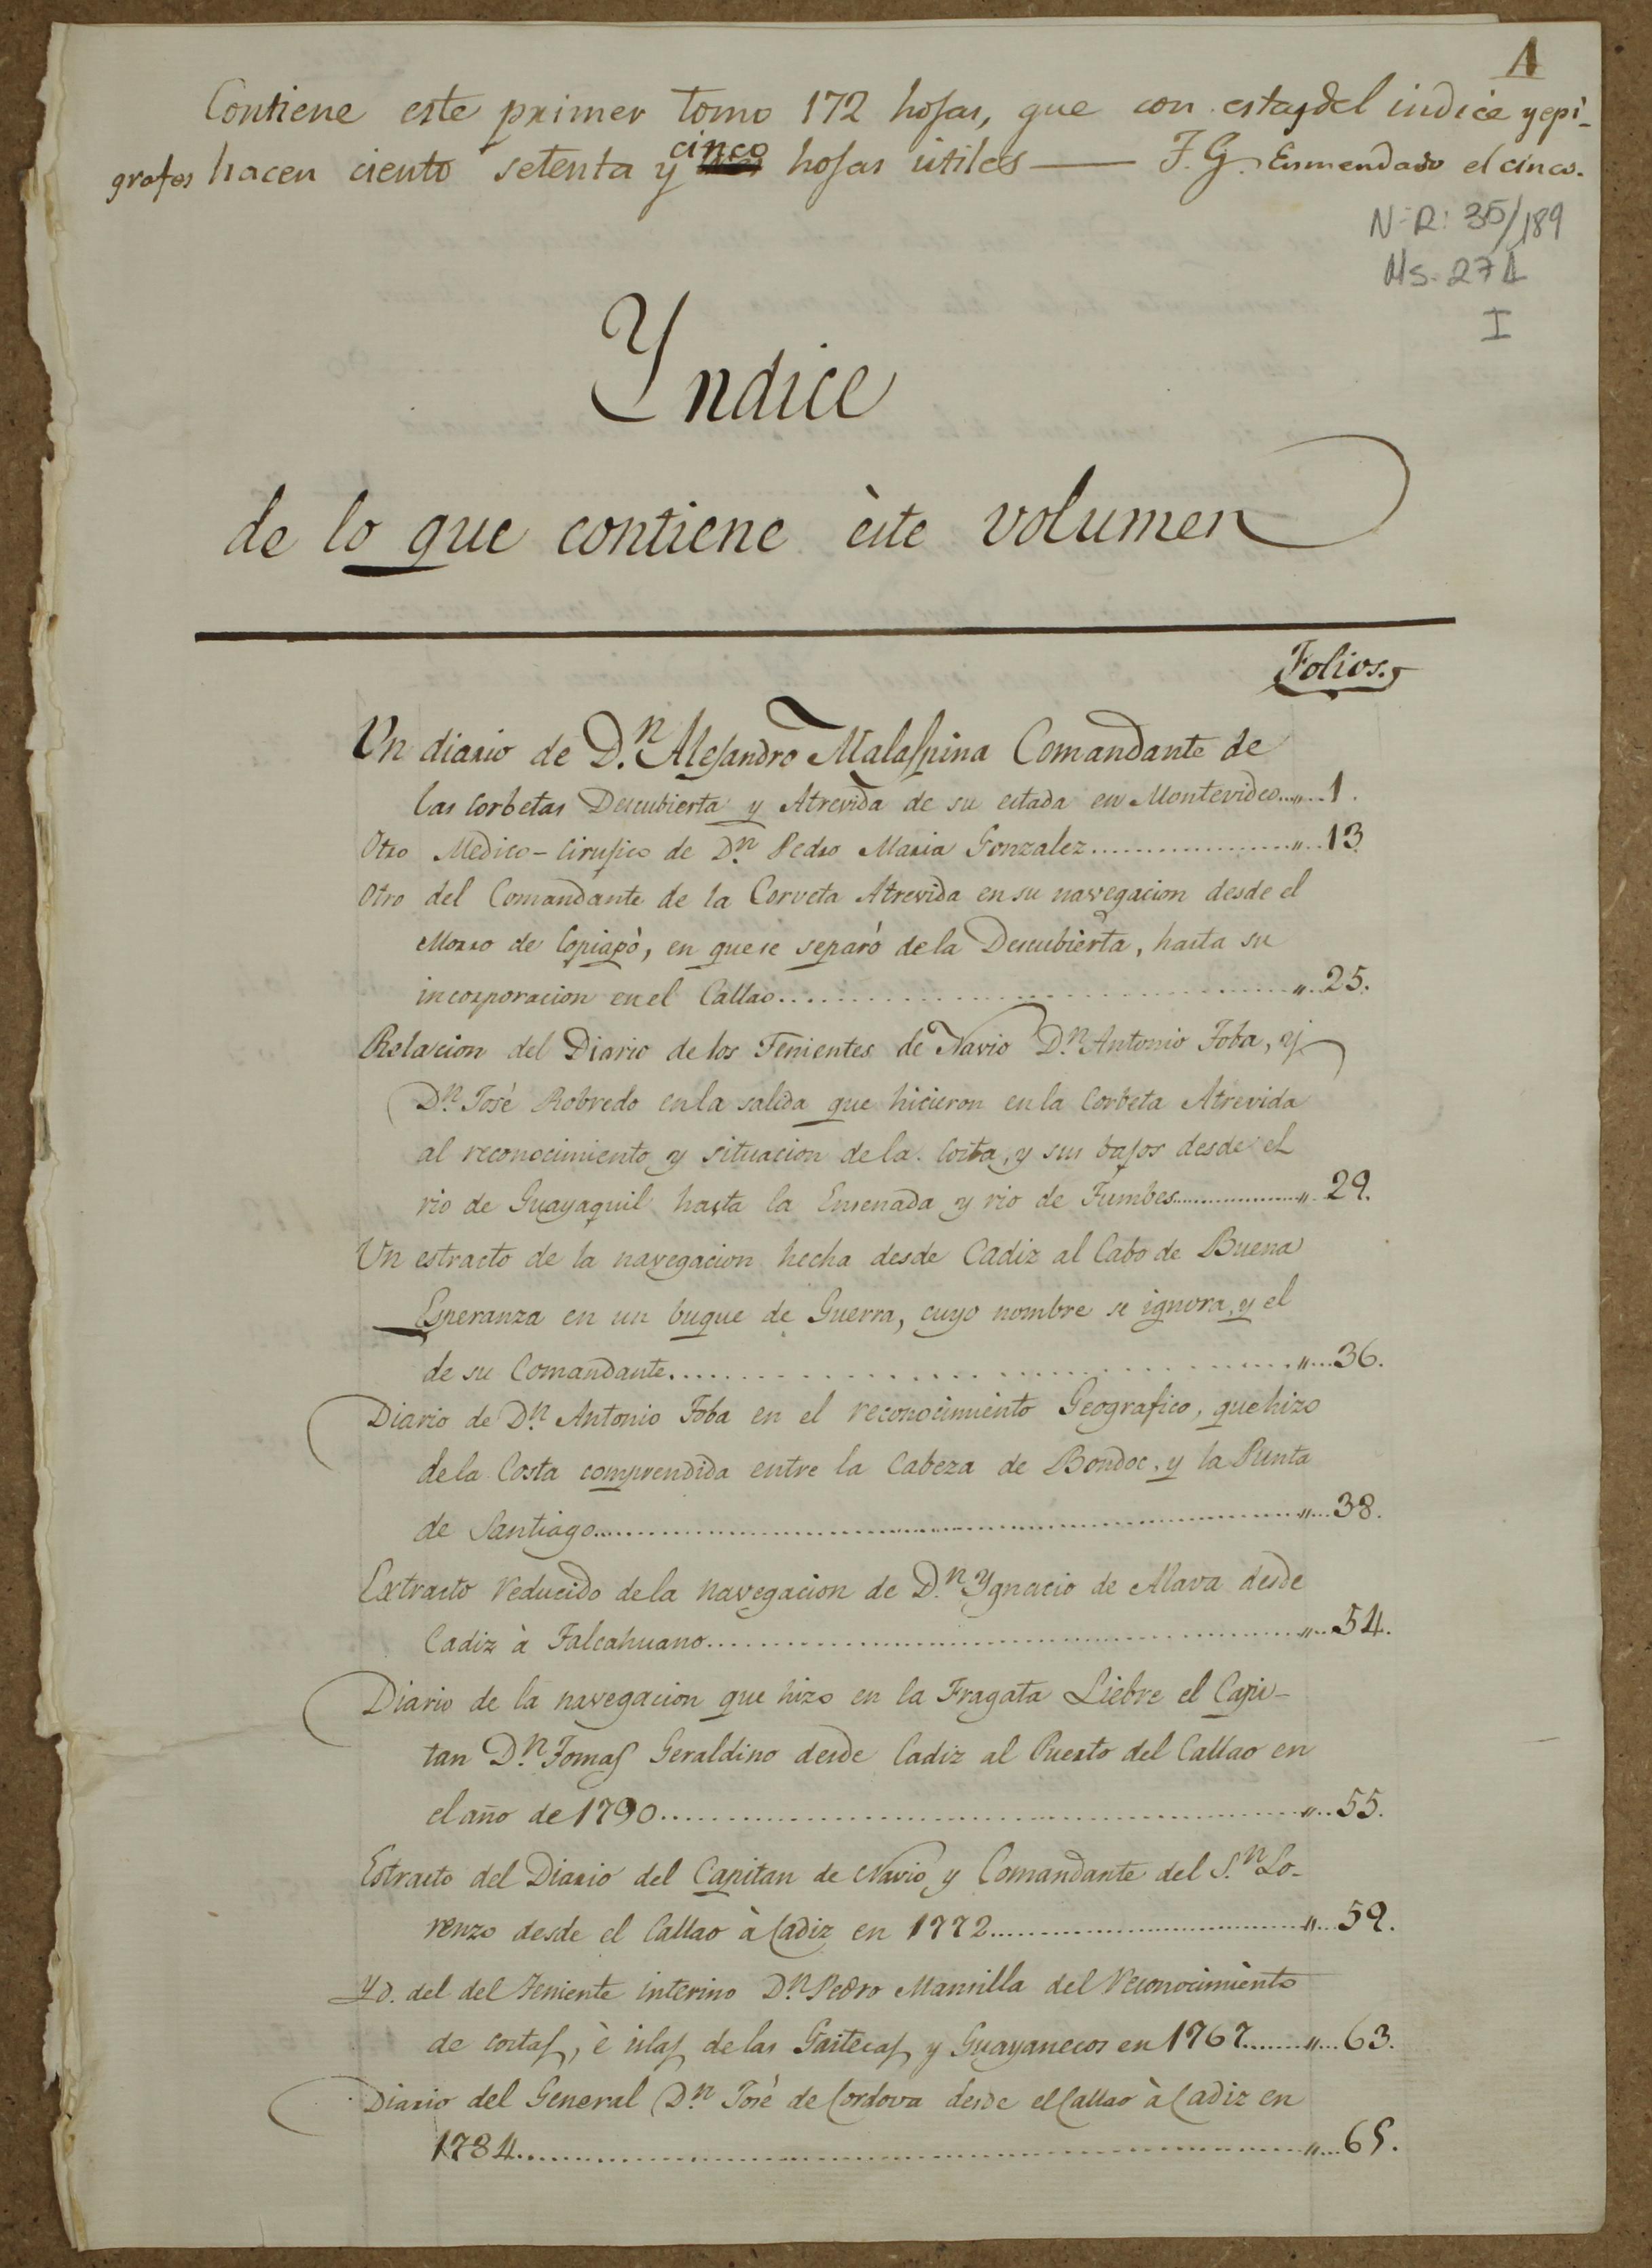 A
Contiene este primer tomo 172 hojas, que con estas del indice y epi-
grafes hacen ciento setenta y cinco hojas útiles — F. G. Enmendado el cinco.
N-R: 35/189
Ms. 271
I
Yndice
de lo que contiene èste volumen
Folios.
Un diario de D.n Alejandro Malaspina Comandante de
las Corbetas Descubierta y Atrevida de su estada en Montevideo....„...1.
Otro Medico-Cirujico de D.n Pedro Maria Gonzalez.................„..13
Otro del Comandante de la Corveta Atrevida en su navegacion desde el
Morro de Copiapò, en que se separó de la Descubierta, hasta su
incorporacion en el Callao.................„..25.
Relacion del Diario de los Tenientes de Navio D.n Antonio Toba, y
D.n José Robredo en la salida que hicieron en la Corbeta Atrevida
al reconocimiento y situacion de la Costa, y sus bajos desde el
rio de Guayaquil hasta la Ensenada y rio de Tumbes.................„..29.
Un estracto de la navegacion hecha desde Cadiz al Cabo de Buena
Esperanza en un buque de Guerra, cuyo nombre se ignora, y el
de su Comandante.................„...36.
Diario de D.n Antonio Toba en el reconocimiento Geografico, que hizo
de la Costa comprendida entre la Cabeza de Bondoc, y la Punta
de Santiago.................„...38.
Extracto reducido de la navegacion de D.n Ygnacio de Alava desde
Cadiz à Talcahuano.................„...54.
Diario de la navegacion que hizo en la Fragata Liebre el Capi-
tan D.n Tomas Geraldino desde Cadiz al Puerto del Callao en
el año de 1790.................„...55.
Estracto del Diario del Capitan de Navio y Comandante del S.n Lo-
renzo desde el Callao à Cadiz en 1772.................„...59.
Yd. del del Teniente interino D.n Pedro Mansilla del Reconocimiento
de costas, è islas de las Gaitecas y Guayanecos en 1767.......„...63.
Diario del General D.n José de Cordova desde el Callao à Cadiz en
1784.................„...65.